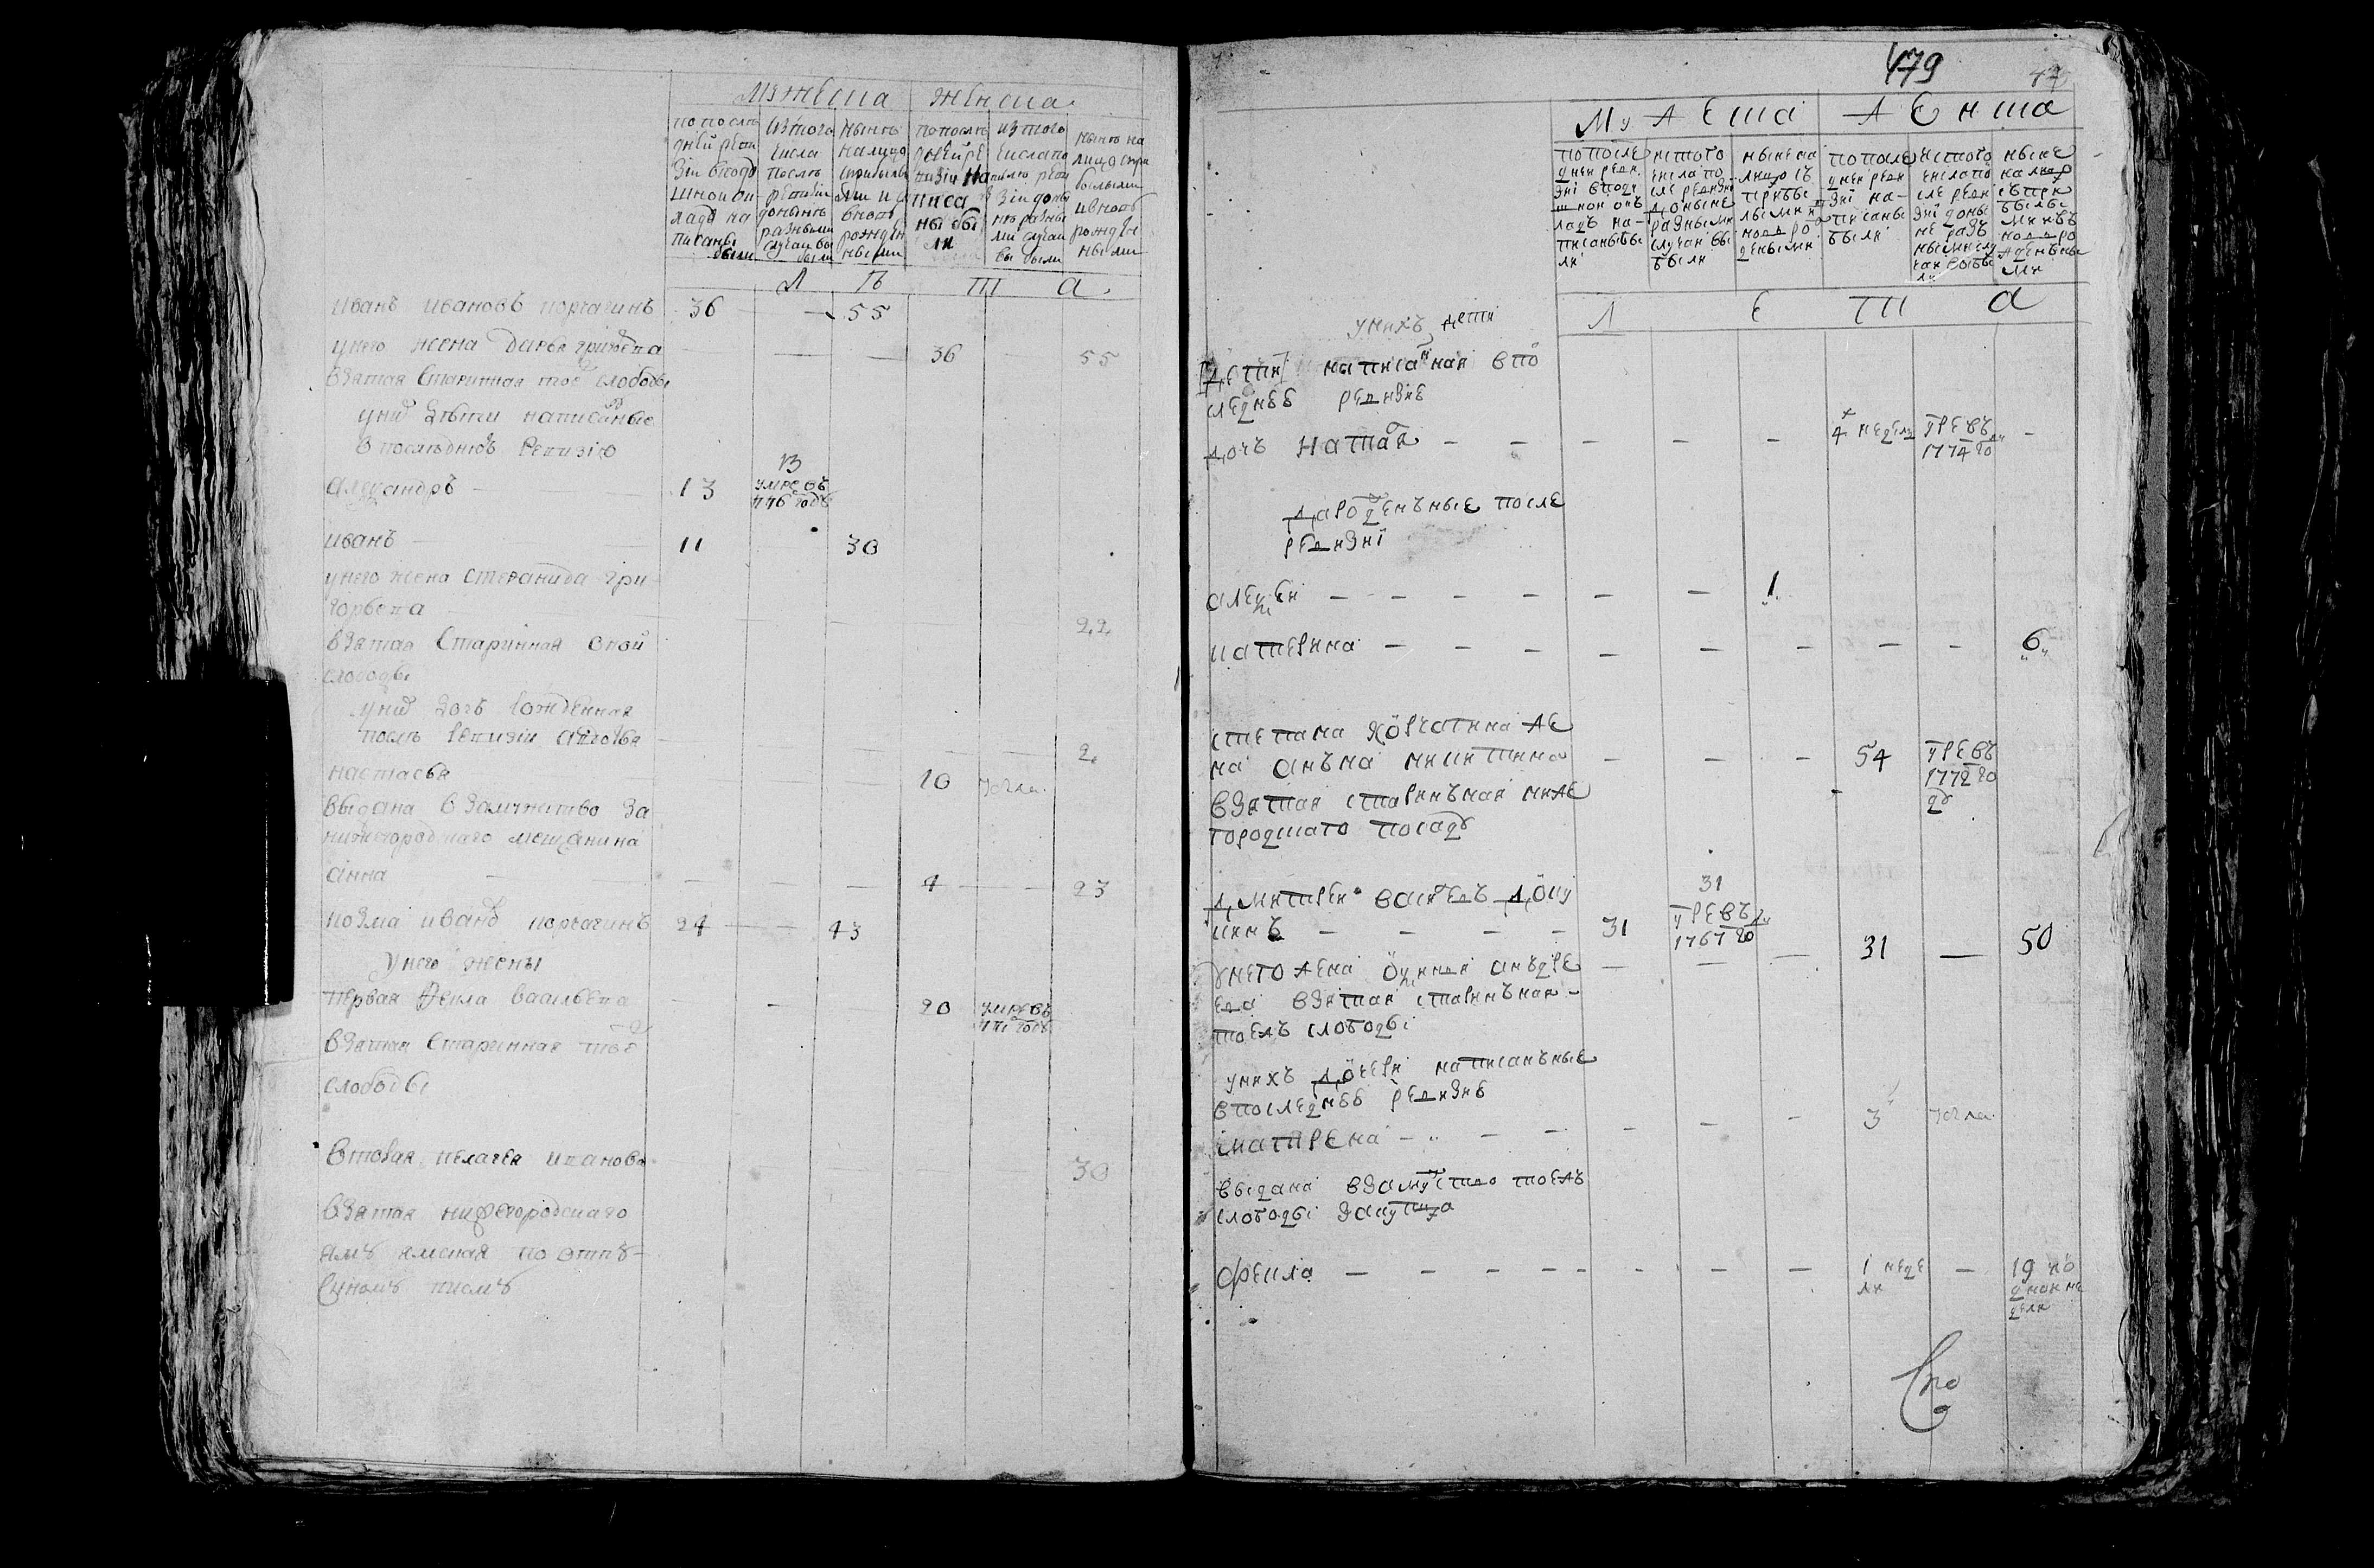 мужеска женска
по послѣ
дней реви
зіи в подо
шной ок
ладъ на
писаны
были
из того
числа
послѣ
ревизіи
донынѣ
разными
случаи вы
были
нынѣ
на лицо
с прибыл
ыми и
вновь
рожден
ными
по послѣ
дней ре
визіи на
писа
ны бы
ли
из того
числа по
слѣ реви
зіи доны
нѣ разны
ми случаи
вы были
нынѣ на
лицо с при
былыми
и вновь
рожде
ными
л ѣ т а
иванъ ивановъ корчагинъ 36 55
у него жена дарья 36 55
взятая старинная тое слободы
у них дѣти написанные
в последнюю ревизію
александръ 13 13 умре въ 1776 годѣ
иванъ 11 30
у него жена степанида гри
горьева 22
взятая старинная оной
слободы
у них дочь рожденная
послѣ ревизіи авдотья 2
настасья 10
выдана в замужество за
нижегородцкаго мещанина
анна 4 23
козма иванов корчагинъ 24 43
у него жены
первая фекла васильева 20 умре въ
взятая старинная тое
слободы
вторая пелагея иванова 30
взятая нижегородского
яму ямская по отпу
скному писму
479
мужеска женска
по после
дней реви
зиі в поду
шной окъ
ладъ на
писаны бы
ли
ис того
числа по
сле ревизиі
доныне
разными
случаи вы
были
ныне на
лицо съ
прибы
лыми и
новоро
деными
по после
дней реви
зиі на
писаны
были
ис того
числа по
сле реви
зиі доны
не разъ
ными слу
чаи выбы
ли
ныне
на лицо
съ при
былы
ми и въ
новоро
жденъны
ми
л е т а
у нихъ дети
дети написанная в по
следней ревизие
дочь наталя 4 недели умре въ 1774 го
да роденъные после
ревизиі
алексей 1
катерина 6
степана корчагина же
на анъна никитина 54 умре въ 1772 го
ду
взятая старинъная ниже
городцкаго посаду
дмитрей васильевъ доку
кинъ 31 31 умре въ 1767 го 31 50
у него жена анъдре
ева взятая старинъная
тоежъ слободы
у нихъ дочери написанъные
в последней ревизие
матрена 3
выдана в замуство тоежъ
слободы за купца
фекла 1 неде
ли 19